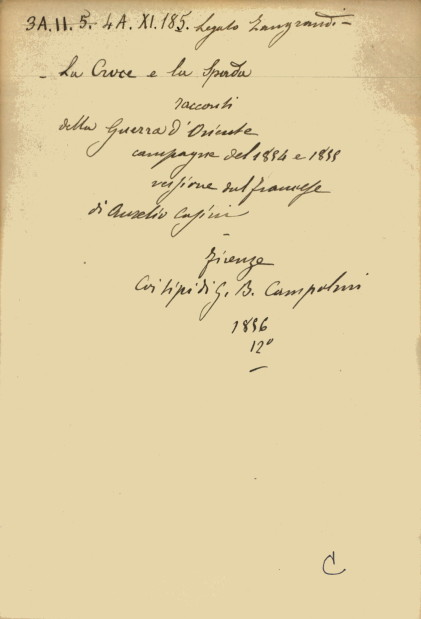 3A.11.5. 4A.XI.185. Legato Zangrandi -
- La Croce e la Spada
racconti
della Guerra d'Oriente
campagne del 1854 e 1855
versione dal francese
di Aurelio Casini
-
Firenze
Coi tipi di G. B. Campolmi
1856
12º
C